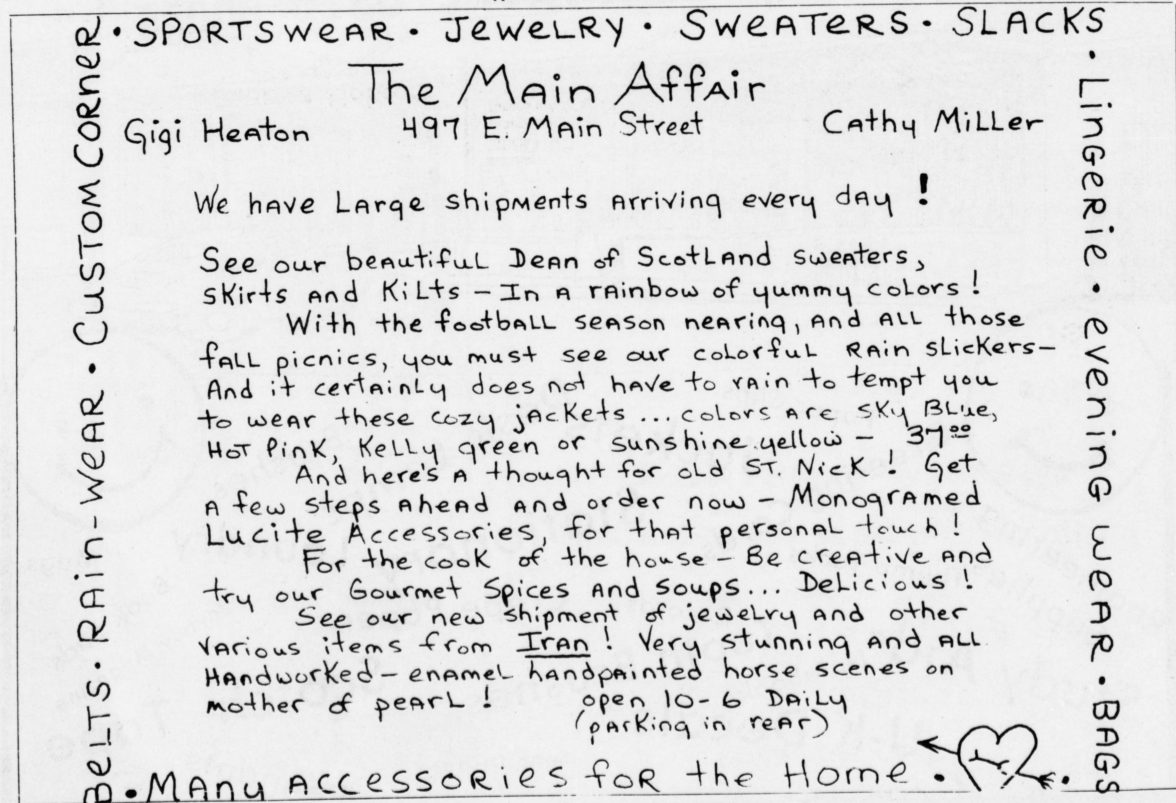 • SPORTSWEAR • JEWELRY • SWEATERS • SLACKS
The Main Affair
Gigi Heaton 497 E. Main Street Cathy Miller
We have Large shipments arriving every day !
See our beautiful Dean of Scotland sweaters,
skirts and Kilts – In a rainbow of yummy colors !
With the football season nearing, and all those
fall picnics, you must see our colorful Rain slickers –
And it certainly does not have to rain to tempt you
to wear these cozy jackets ... colors are sky Blue,
Hot Pink, Kelly green or sunshine yellow – 37.00
And here's a thought for old St. Nick ! Get
a few steps ahead and order now – Monogramed
Lucite Accessories, for that personal touch !
For the cook of the house – Be creative and
try our Gourmet Spices and soups ... Delicious !
See our new shipment of jewelry and other
various items from Iran ! Very stunning and all
Handworked – enamel handpainted horse scenes on
mother of pearl ! open 10-6 Daily
(parking in rear)
• Lingerie • evening wear • BAGS
Belts • Rain-Wear • Custom Corner
• Many Accessories for the Home •